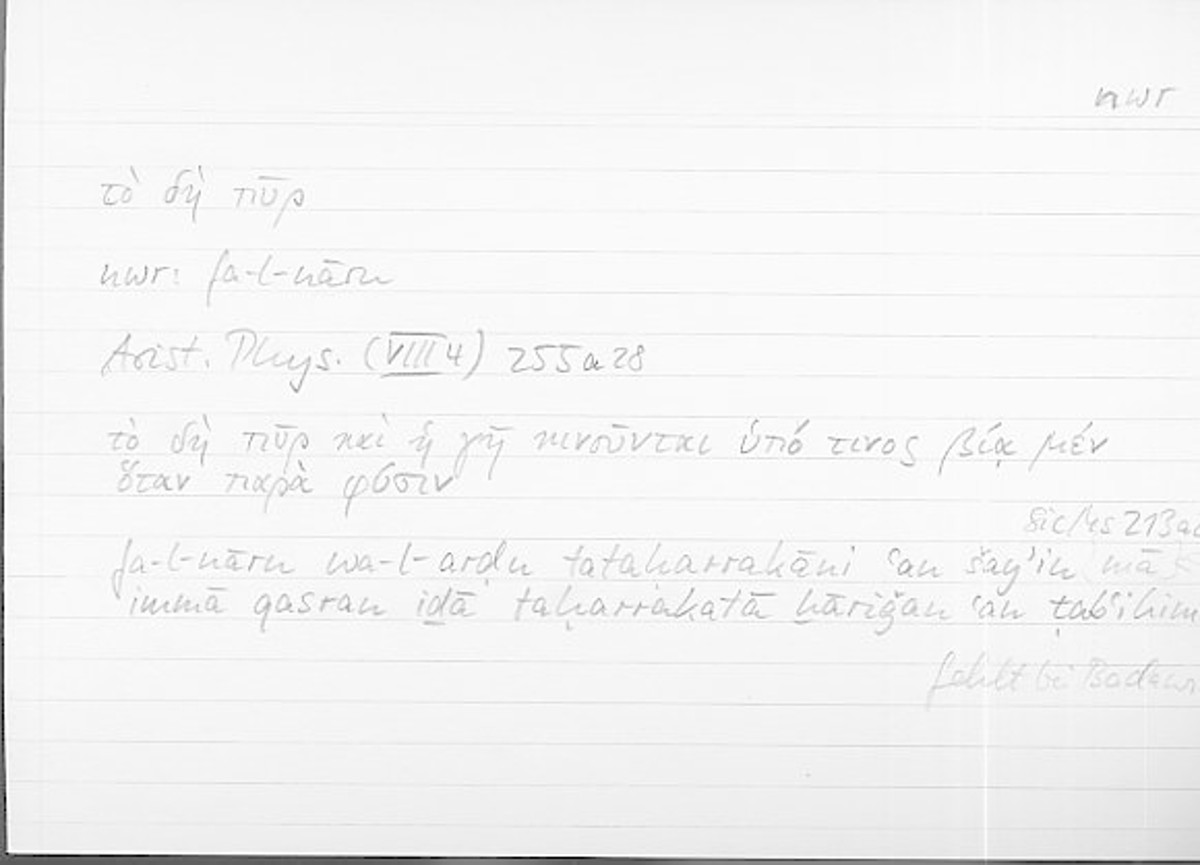 nwr
τὸ δὴ πῦρ
nwr: fa-l-nāru
Arist. Phys. (VIII 4) 255a28
τὸ δὴ πῦρ καὶ ἡ γῆ κινοῦνται ὑπό τινος βίᾳ μέν
ὅταν παρὰ φύσιν
sic/Hs 213a
fa-l-nāru wa-l-arḍu tataḥarrakāni ʿan šayʾin mā
immā qasran iḏā taḥarrakatā ḫāriǧan ʿan ṭabʿihim
fehlt bei Badawi